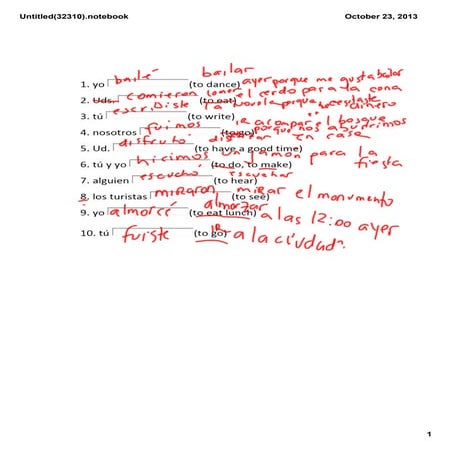 Untitled(32310).notebook October 23, 2013
bailar
1. yo bailé (to dance) ayer porque me gusta bailar
2. Uds. comieron (to eat) comer el cerdo para la cena
3. tú escribiste (to write) la novela porque necesitaste dinero
4. nosotros fuimos (to go) ir a acompar el bosque porque nos aburrimos
5. Ud. disfruto (to have a good time) disfrutar en case
6. tú y yo hicimos (to do, to make) un jamon para la fiesta
7. alguien escucho (to hear) escuchar
8. los turistas miraron (to see) mirar el monumento
9. yo almorcé (to eat lunch) almorzar a las 12:00 ayer
10. tú fuiste (to go) ir a la ciudad.
1